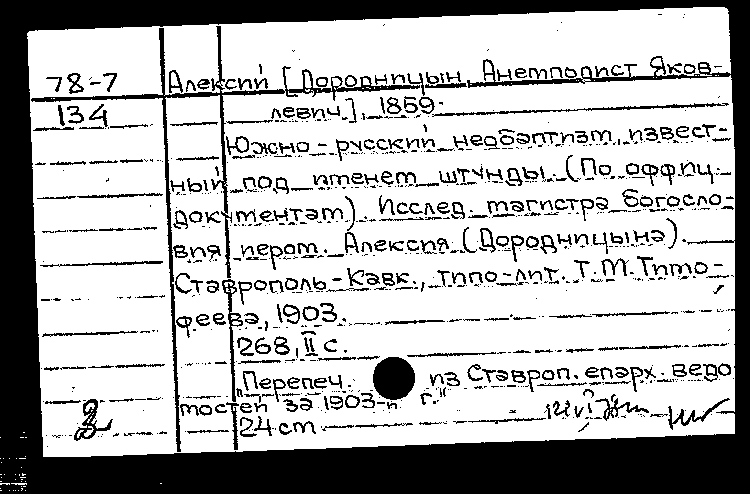 78-7 Алексий [Дородницын, Анемподист Яков-
134 левич], 1859-
Южно-русский необаптизм, извест-
ный под именем штунды. (По оффиц.
документам). Исслед. магистра богосло-
вия иером. Алексия (Дородницына).
Ставрополь-Кавк., типо-лит. Т.М. Тимо-
феева, 1903.
268, II с.
"Перепеч. из Ставроп. епарх. ведо
мостей за 1903-й г."
2 24 см